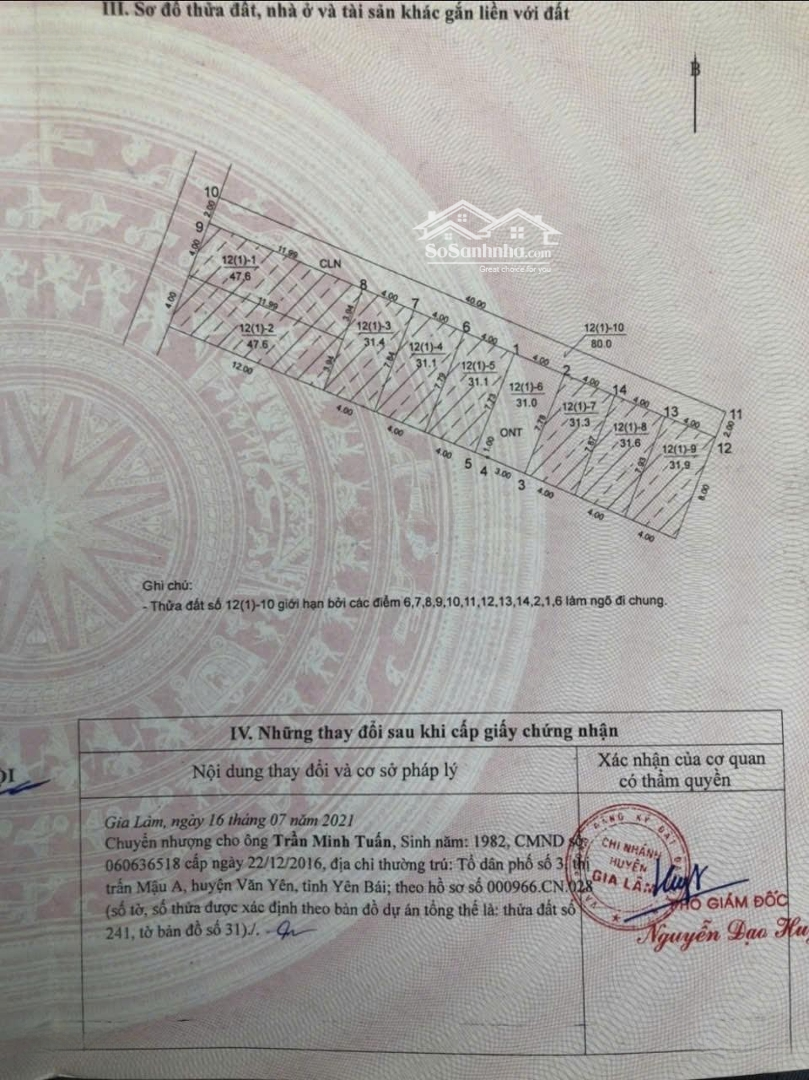 III. Sơ đồ thửa đất, nhà ở và tài sản khác gắn liền với đất
B
SoSanhnha.com
Great choice for you
10
2.00
9
4.00
12(1)-1
47.6
11.99
CLN
8
4.00
7
4.00
6
4.00
40.00
1
4.00
12(1)-10
80.0
2
4.00
14
4.00
13
4.00
11
2.00
12
4.00
11.99
12(1)-2
47.6
12.00
3.94
3.94
12(1)-3
31.4
7.84
12(1)-4
31.1
7.79
12(1)-5
31.1
7.73
12(1)-6
31.0
ONT
1.00
7.78
12(1)-7
31.3
7.87
12(1)-8
31.6
7.93
12(1)-9
31.9
8.00
4.00
4.00
4.00
5
4
3.00
3
4.00
4.00
4.00
Ghi chú:
- Thửa đất số 12(1)-10 giới hạn bởi các điểm 6,7,8,9,10,11,12,13,14,2,1,6 làm ngõ đi chung.
IV. Những thay đổi sau khi cấp giấy chứng nhận
Nội dung thay đổi và cơ sở pháp lý
Xác nhận của cơ quan
có thẩm quyền
Gia Lâm, ngày 16 tháng 07 năm 2021
Chuyển nhượng cho ông Trần Minh Tuấn, Sinh năm: 1982, CMND số
060636518 cấp ngày 22/12/2016, địa chỉ thường trú: Tổ dân phố số 3, thị
trấn Mậu A, huyện Văn Yên, tỉnh Yên Bái; theo hồ sơ số 000966.CN.028
(số tờ, số thửa được xác định theo bản đồ dự án tổng thể là: thửa đất số
241, tờ bản đồ số 31)./.
CHI NHÁNH
HUYỆN
GIA LÂM
PHÓ GIÁM ĐỐC
Nguyễn Đạo